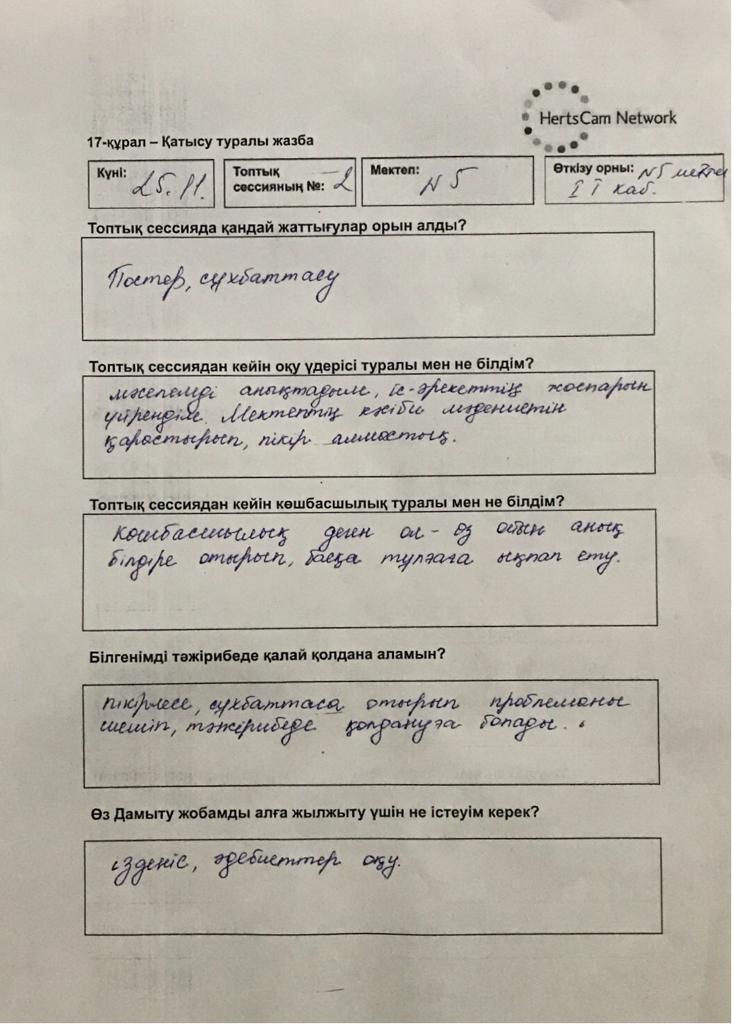 HertsCam Network
17-құрал – Қатысу туралы жазба
Күні: 25.11.
Топтық сессияның №: 2
Мектеп: N 5
Өткізу орны: N5 мектеп
каб.
Топтық сессияда қандай жаттығулар орын алды?
Постер, сұхбаттасу
Топтық сессиядан кейін оқу үдерісі туралы мен не білдім?
мәселемді анықтадым, іс-әрекеттің жоспарын
үйрендім. Мектептің кәсіби мәдениетін
қарастырып, пікір алмастық.
Топтық сессиядан кейін көшбасшылық туралы мен не білдім?
Көшбасшылық деген ол - өз ойын анық
білдіре отырып, басқа тұлғаға ықпал ету.
Білгенімді тәжірибеде қалай қолдана аламын?
пікірлесе, сұхбаттаса отырып проблеманы
шешіп, тәжірибеде қолдануға болады.
Өз Дамыту жобамды алға жылжыту үшін не істеуім керек?
ізденіс, әдебиеттер оқу.